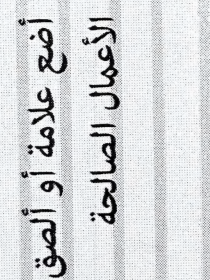 أضع علامة أو ألصق
الأعمال الصالحة